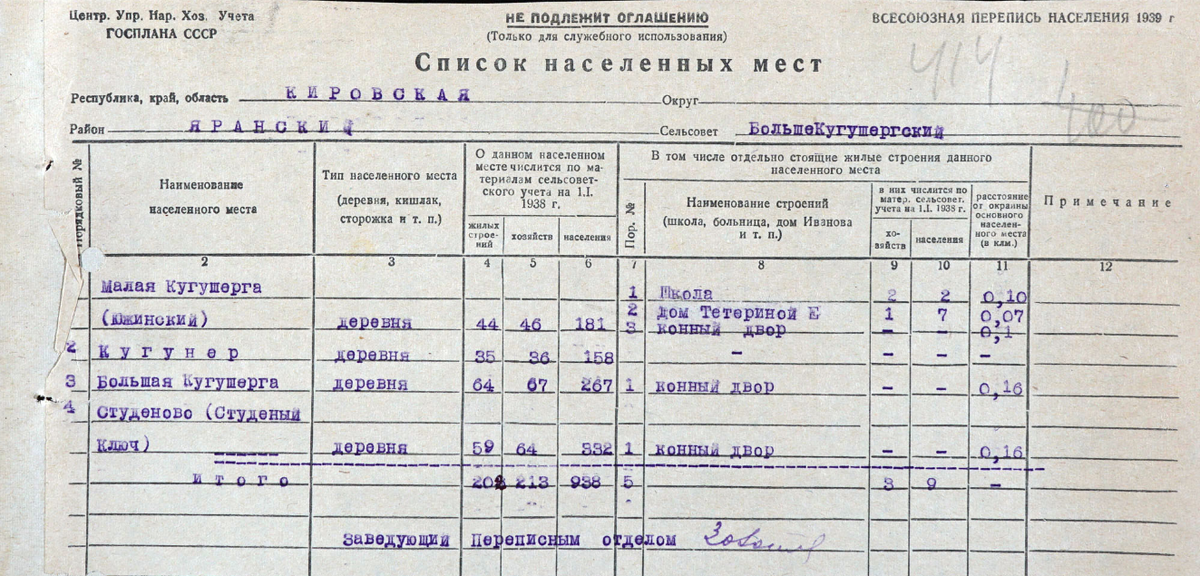 Центр. Упр. Нар. Хоз. Учета
ГОСПЛАНА СССР
НЕ ПОДЛЕЖИТ ОГЛАШЕНИЮ
(Только для служебного использования)
ВСЕСОЮЗНАЯ ПЕРЕПИСЬ НАСЕЛЕНИЯ 1939 г
Список населенных мест
414
400
Республика, край, область КИРОВСКАЯ Округ
Район ЯРАНСКИЙ Сельсовет БольшеКугушергский
Порядковый №
Наименование
населенного места
Тип населенного места
(деревня, кишлак,
сторожка и т. п.)
О данном населенном
месте числится по ма-
териалам сельсовет-
ского учета на 1.I.
1938 г.
жилых
строе-
ний
хозяйств
населения
В том числе отдельно стоящие жилые строения данного
населенного места
Пор. №
Наименование строений
(школа, больница, дом Иванова
и т. п.)
в них числится по
матер. сельсовет.
учета на 1.I. 1938 г.
хо-
зяйств
населения
расстояние
от окраины
основного
населен-
ного места
(в клм.)
Примечание
2 3 4 5 6 7 8 9 10 11 12
Малая Кугушерга 1 Школа 2 2 0,10
(Южинский) деревня 44 46 181 2 Дом Тетериной Е 1 7 0,07
3 конный двор – – 0,1
2 Кугунер деревня 35 36 158 – – – –
3 Большая Кугушерга деревня 64 67 267 1 конный двор – – 0,16
4 Студеново (Студеный
Ключ) деревня 59 64 332 1 конный двор – – 0,16
Итого 202 213 938 5 3 9 –
Заведующий Переписным отделом